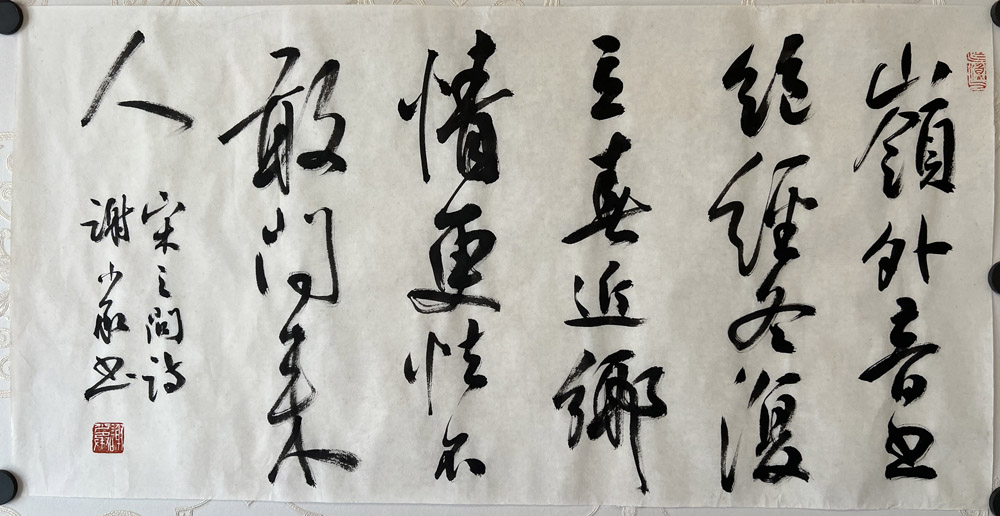 嶺外音书
絕經冬復
立春近鄉
情更怯不
敢问来
人
宋之問诗
謝少承书